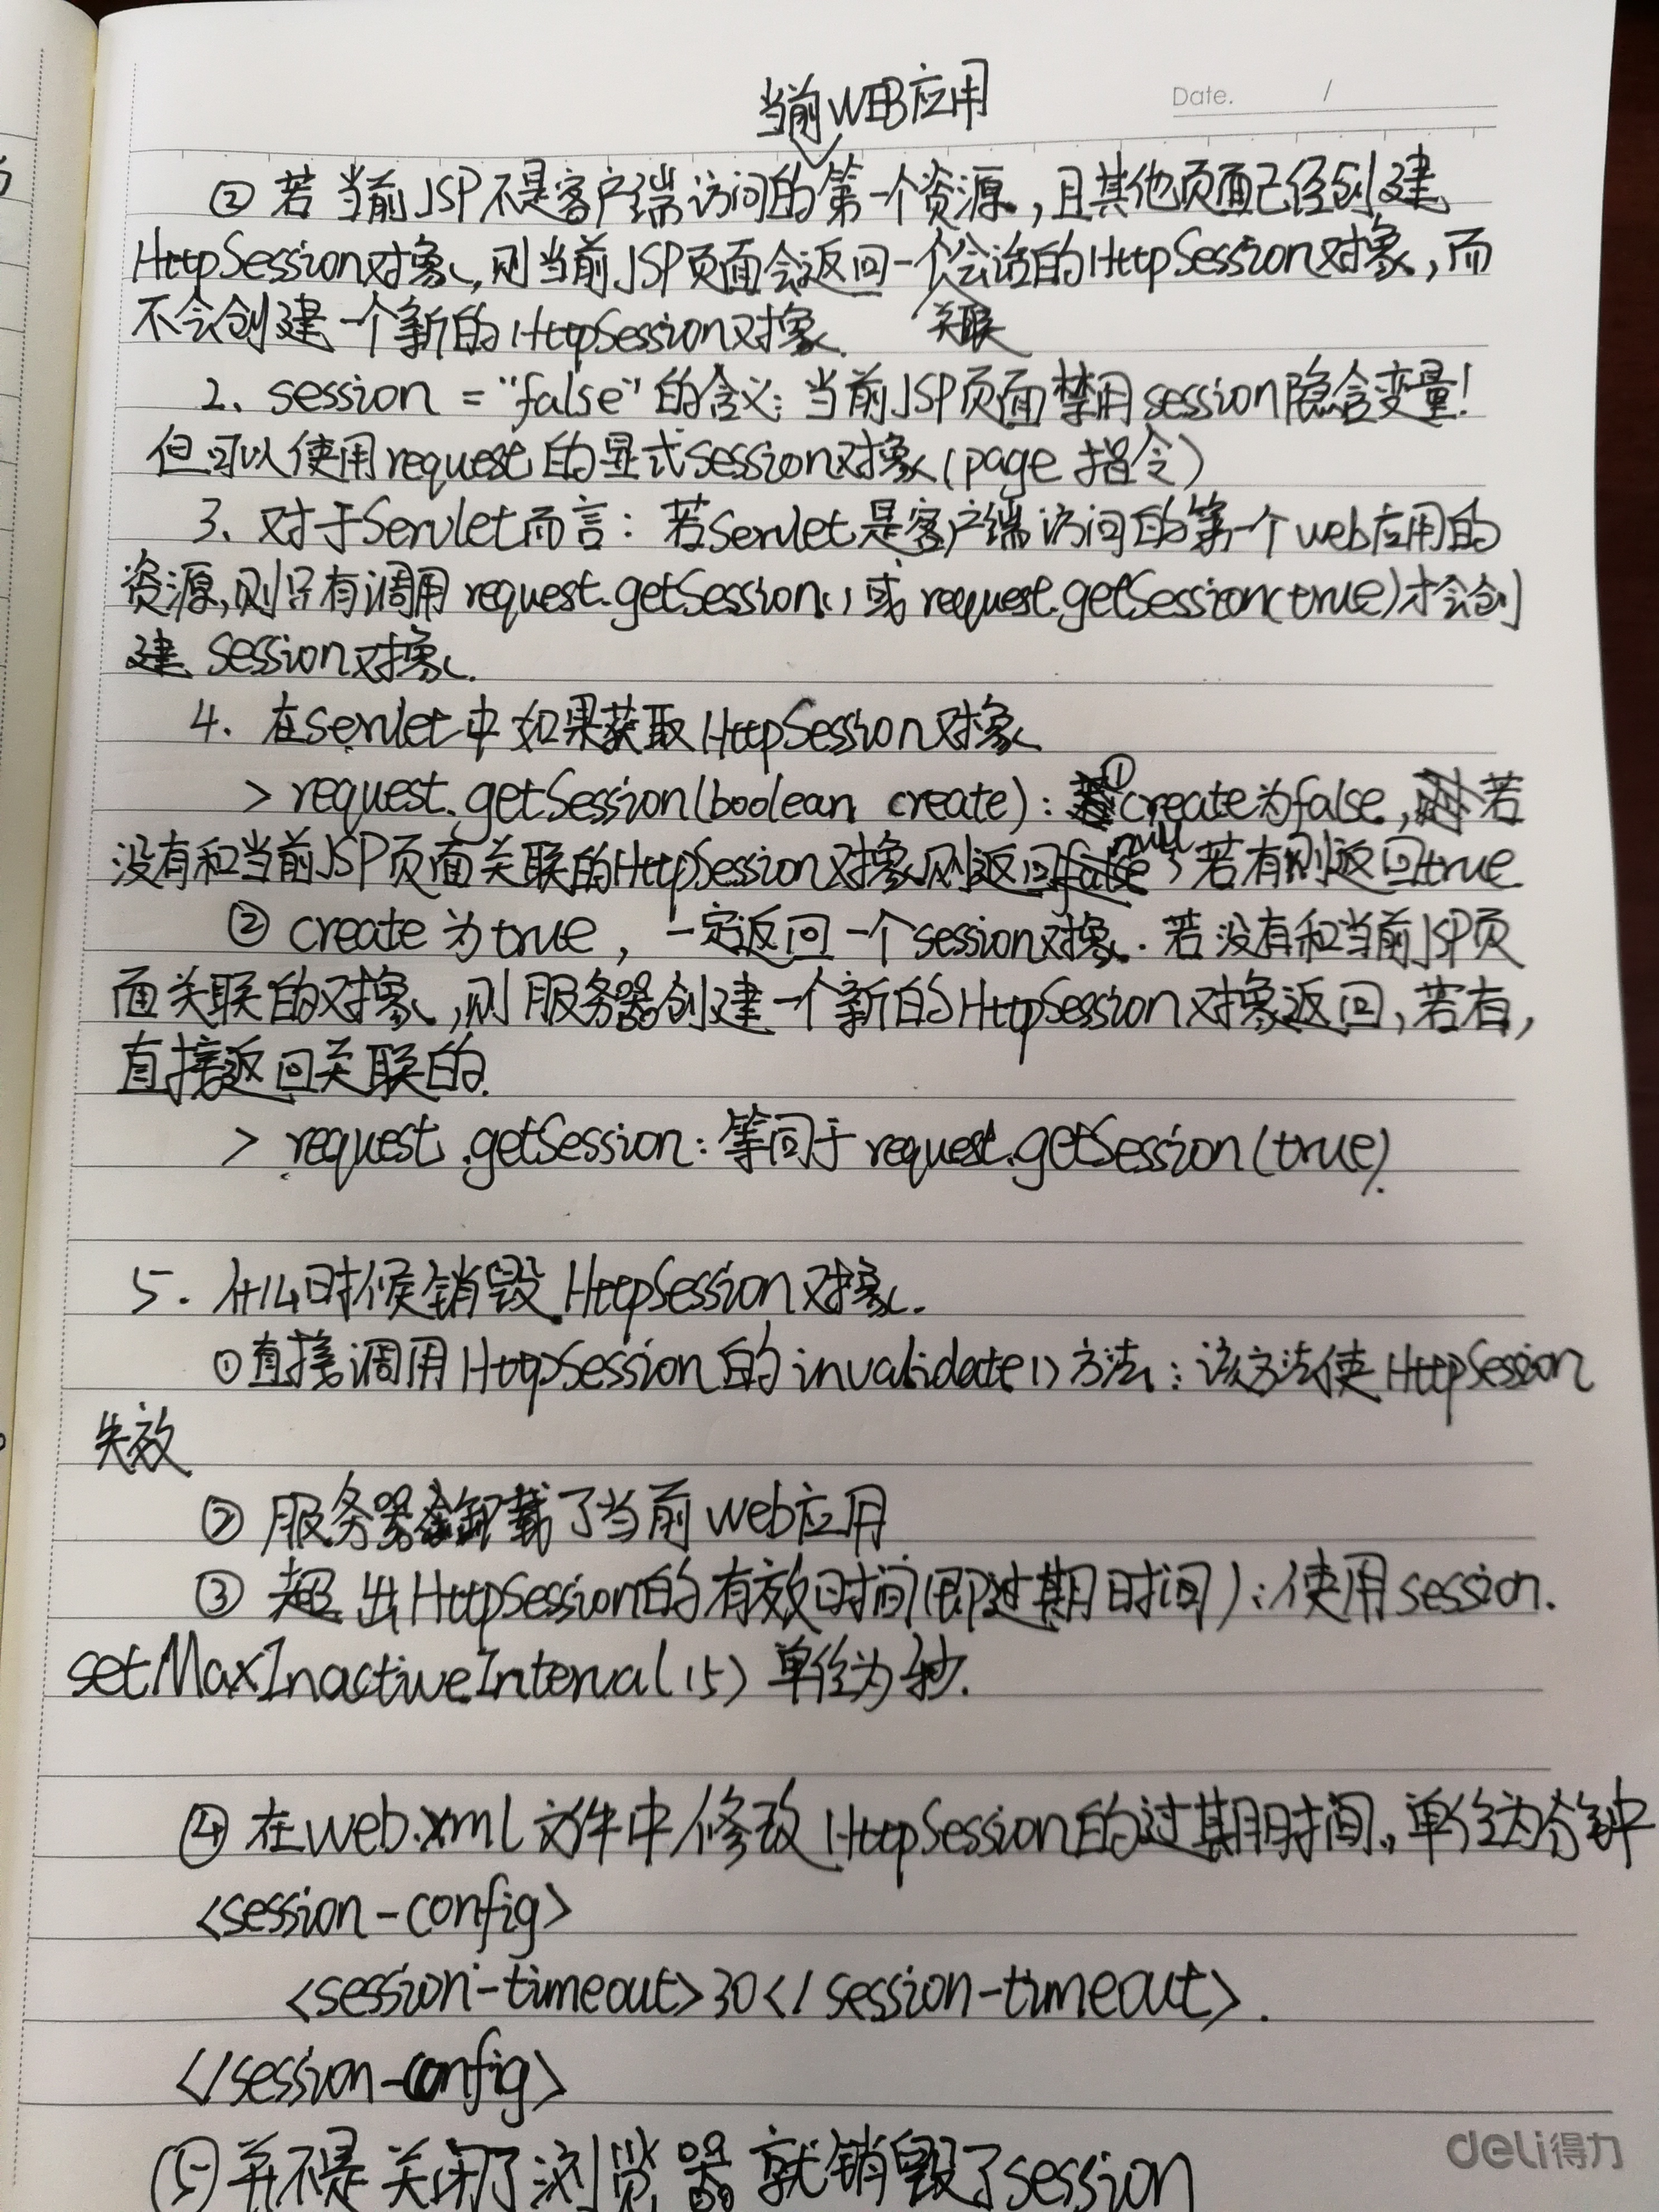 Date. /
当前WEB应用
② 若当前JSP不是客户端访问的第一个资源,且其他页面已经创建
HttpSession对象,则当前JSP页面会返回一个会话的HttpSession对象,而
关联
不会创建一个新的HttpSession对象.
2、session = "false"的含义:当前JSP页面禁用session隐含变量!
但可以使用request的显式session对象(page 指令)
3、对于Servlet而言:若Servlet是客户端访问的第一个web应用的
资源,则只有调用 request.getSession() 或 request.getSession(true)才会创
建 session对象.
4. 在servlet中如果获取HttpSession对象
> request.getSession(boolean create): ①create为false, 若
没有和当前JSP页面关联的HttpSession对象则返回null, 若有则返回true
② create为true, 一定返回一个session对象. 若没有和当前JSP页
面关联的对象,则服务器创建一个新的HttpSession对象返回,若有,
直接返回关联的.
> request.getSession: 等同于request.getSession(true).
5. 什么时候销毁HttpSession对象.
①直接调用HttpSession的invalidate()方法:该方法使HttpSession
失效
② 服务器卸载了当前web应用
③ 超出HttpSession的有效时间(即过期时间):使用session.
setMaxInactiveInterval(15) 单位为秒.
④ 在web.xml文件中修改HttpSession的过期时间,单位为分钟
<session-config>
<session-timeout>30</session-timeout>.
</session-config>
⑤并不是关闭了浏览器就销毁了session
deli得力